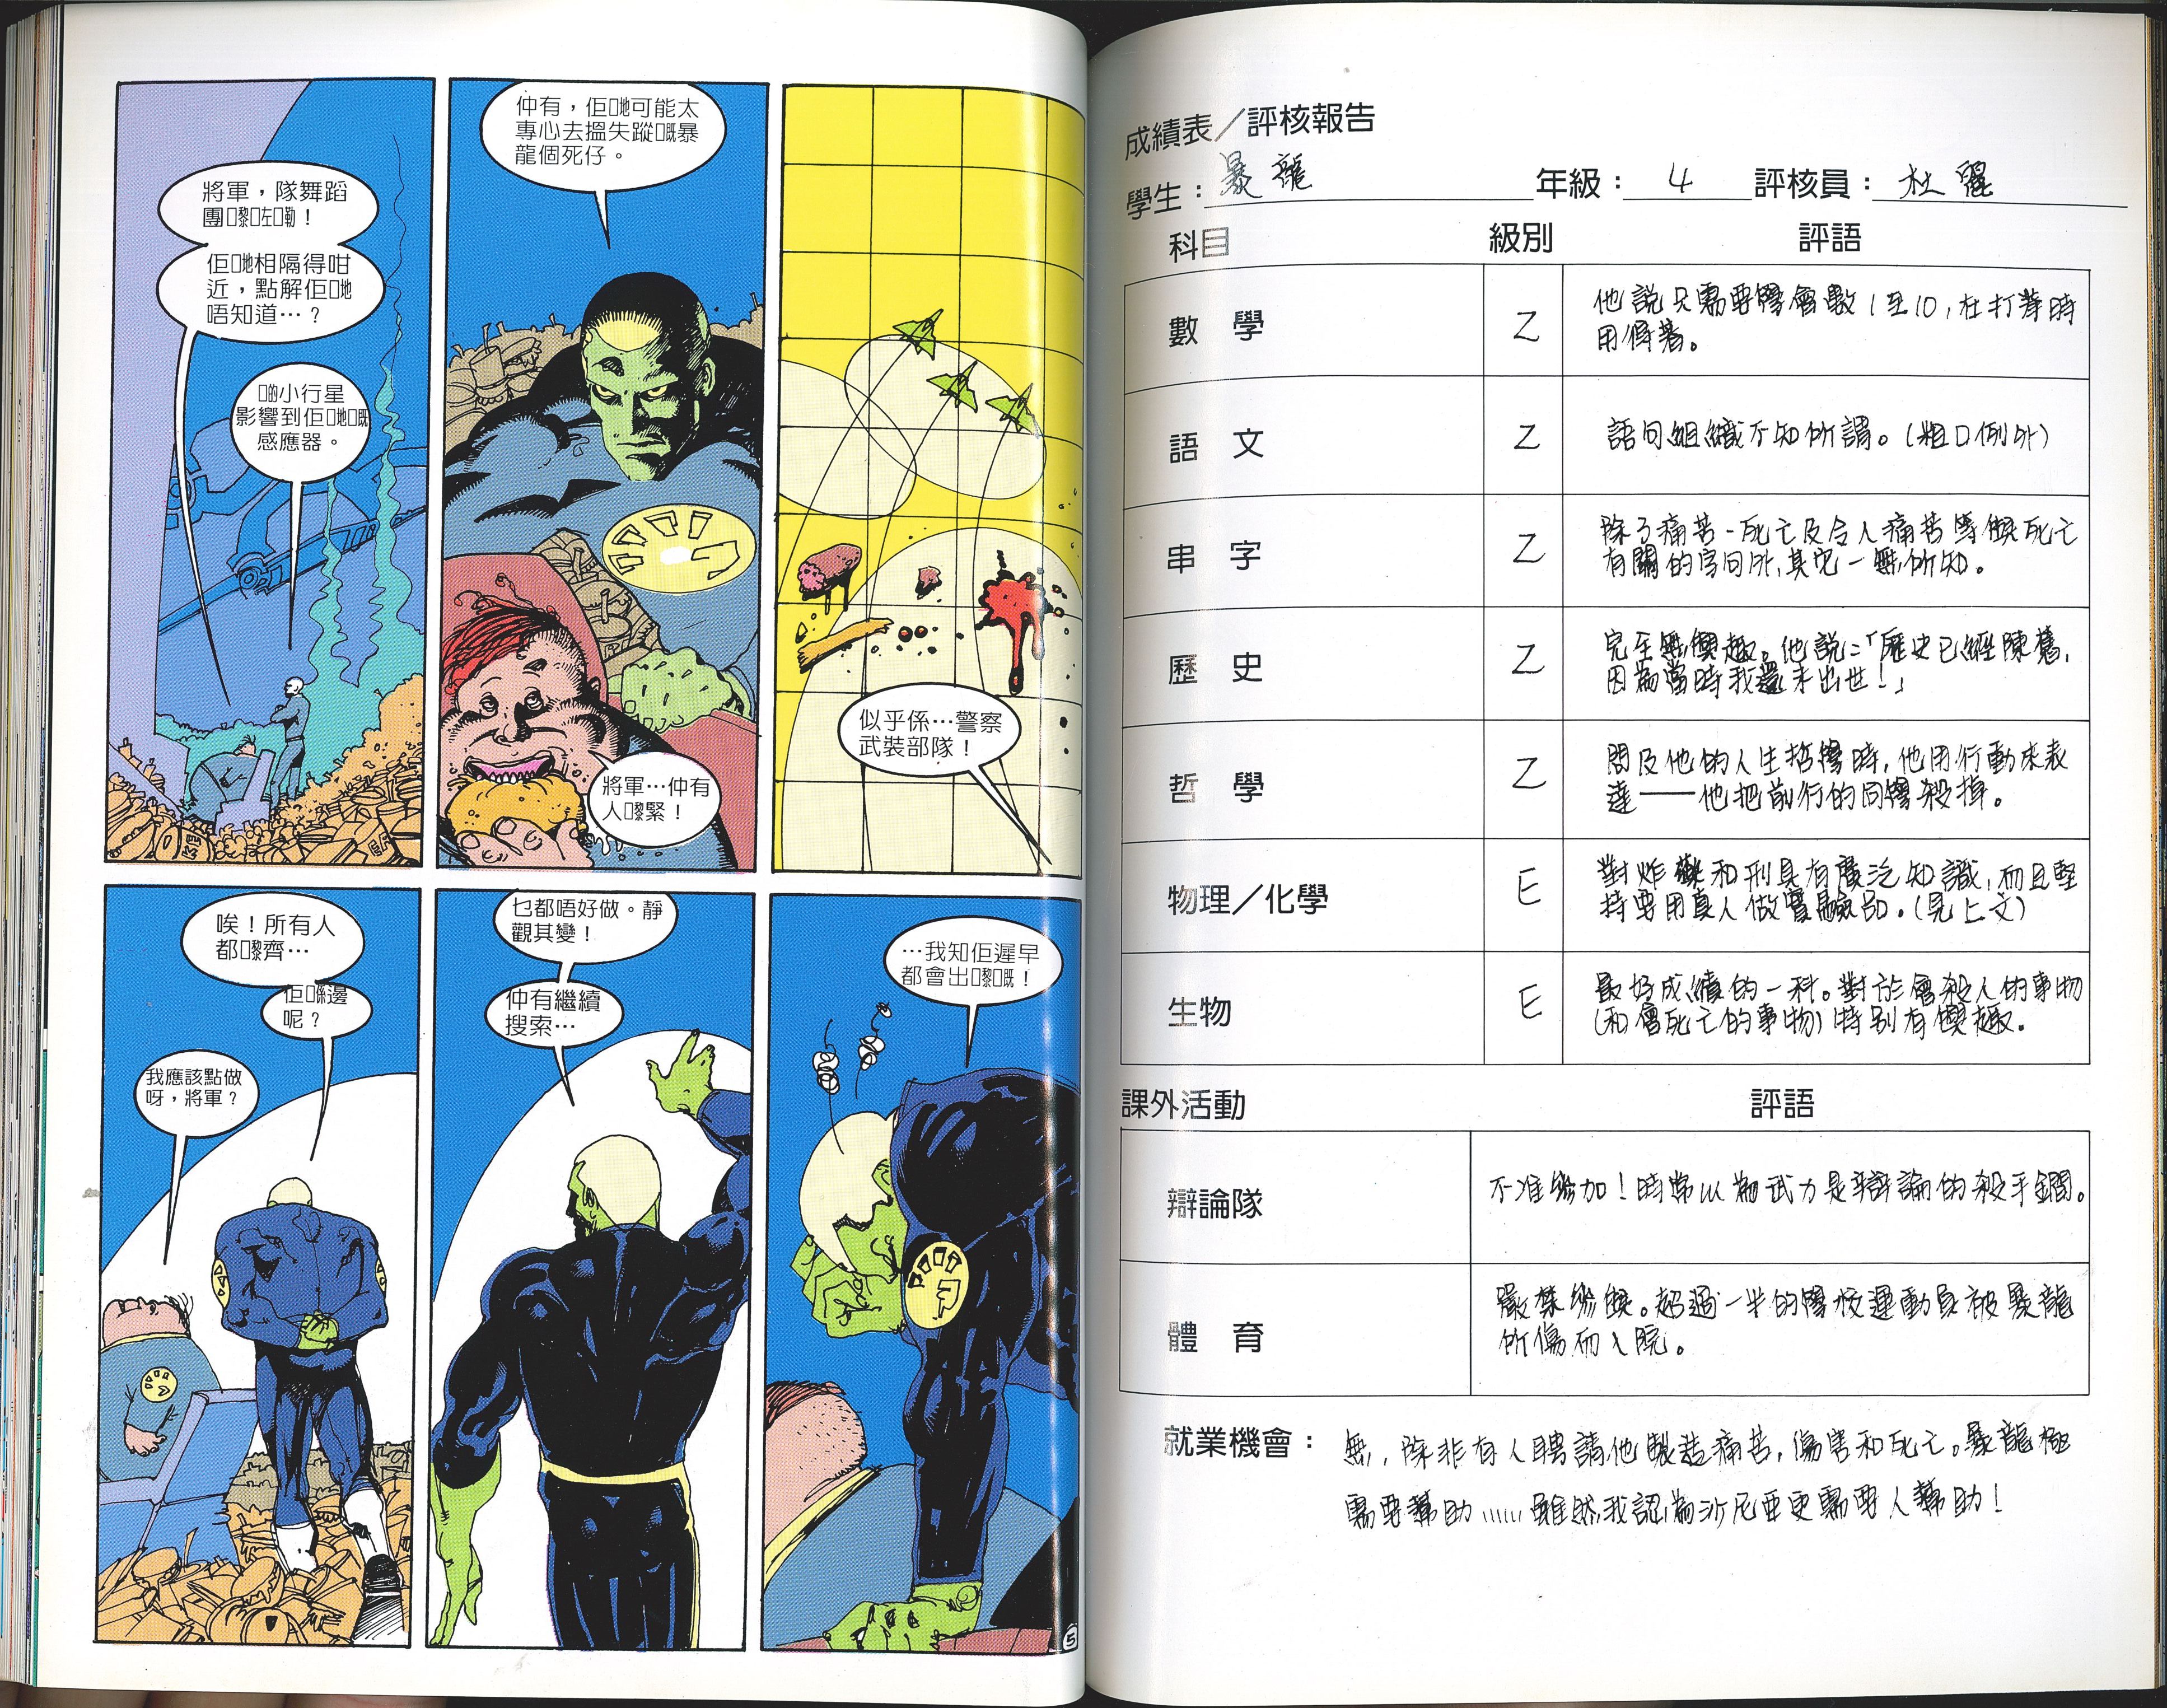 將軍，隊舞蹈
團嚟左勒！
佢哋相隔得咁
近，點解佢哋
唔知道…？
啲小行星
影響到佢哋嘅
感應器。
仲有，佢哋可能太
專心去搵失蹤嘅暴
龍個死仔。
將軍…仲有
人嚟緊！
似乎係…警察
武裝部隊！
唉！所有人
都嚟齊…
佢喺邊
呢？
我應該點做
呀，將軍？
乜都唔好做。靜
觀其變！
仲有繼續
搜索…
…我知佢遲早
都會出嚟嘅！
5
成績表／評核報告
學生：暴龍 年級：4 評核員：杜麗
科目 級別 評語
數學 Z 他說只需要學會數1至10，在打荐時
用得着。
語文 Z 語句組織不知所謂。（粗口例外）
串字 Z 除了痛苦、死亡及令人痛苦與死亡
有關的字句外，其它一無所知。
歷史 Z 完全無興趣。他說：「歷史已經陳舊，
因為當時我還未出世！」
哲學 Z 問及他的人生哲學時，他用行動來表
達——他把前行的同學殺掉。
物理／化學 E 對炸藥和刑具有廣泛知識，而且堅
持要用真人做實驗品。（見上文）
生物 E 最好成績的一科。對於會殺人的事物
（和會死亡的事物）特別有興趣。
課外活動 評語
辯論隊 不准參加！時常以為武力是辯論的殺手鐧。
體育 嚴禁參與。超過一半的學校運動員被暴龍
所傷而入院。
就業機會：無，除非有人聘請他製造痛苦，傷害和死亡。暴龍極
需要幫助……雖然我認為沙尼亞更需要人幫助！